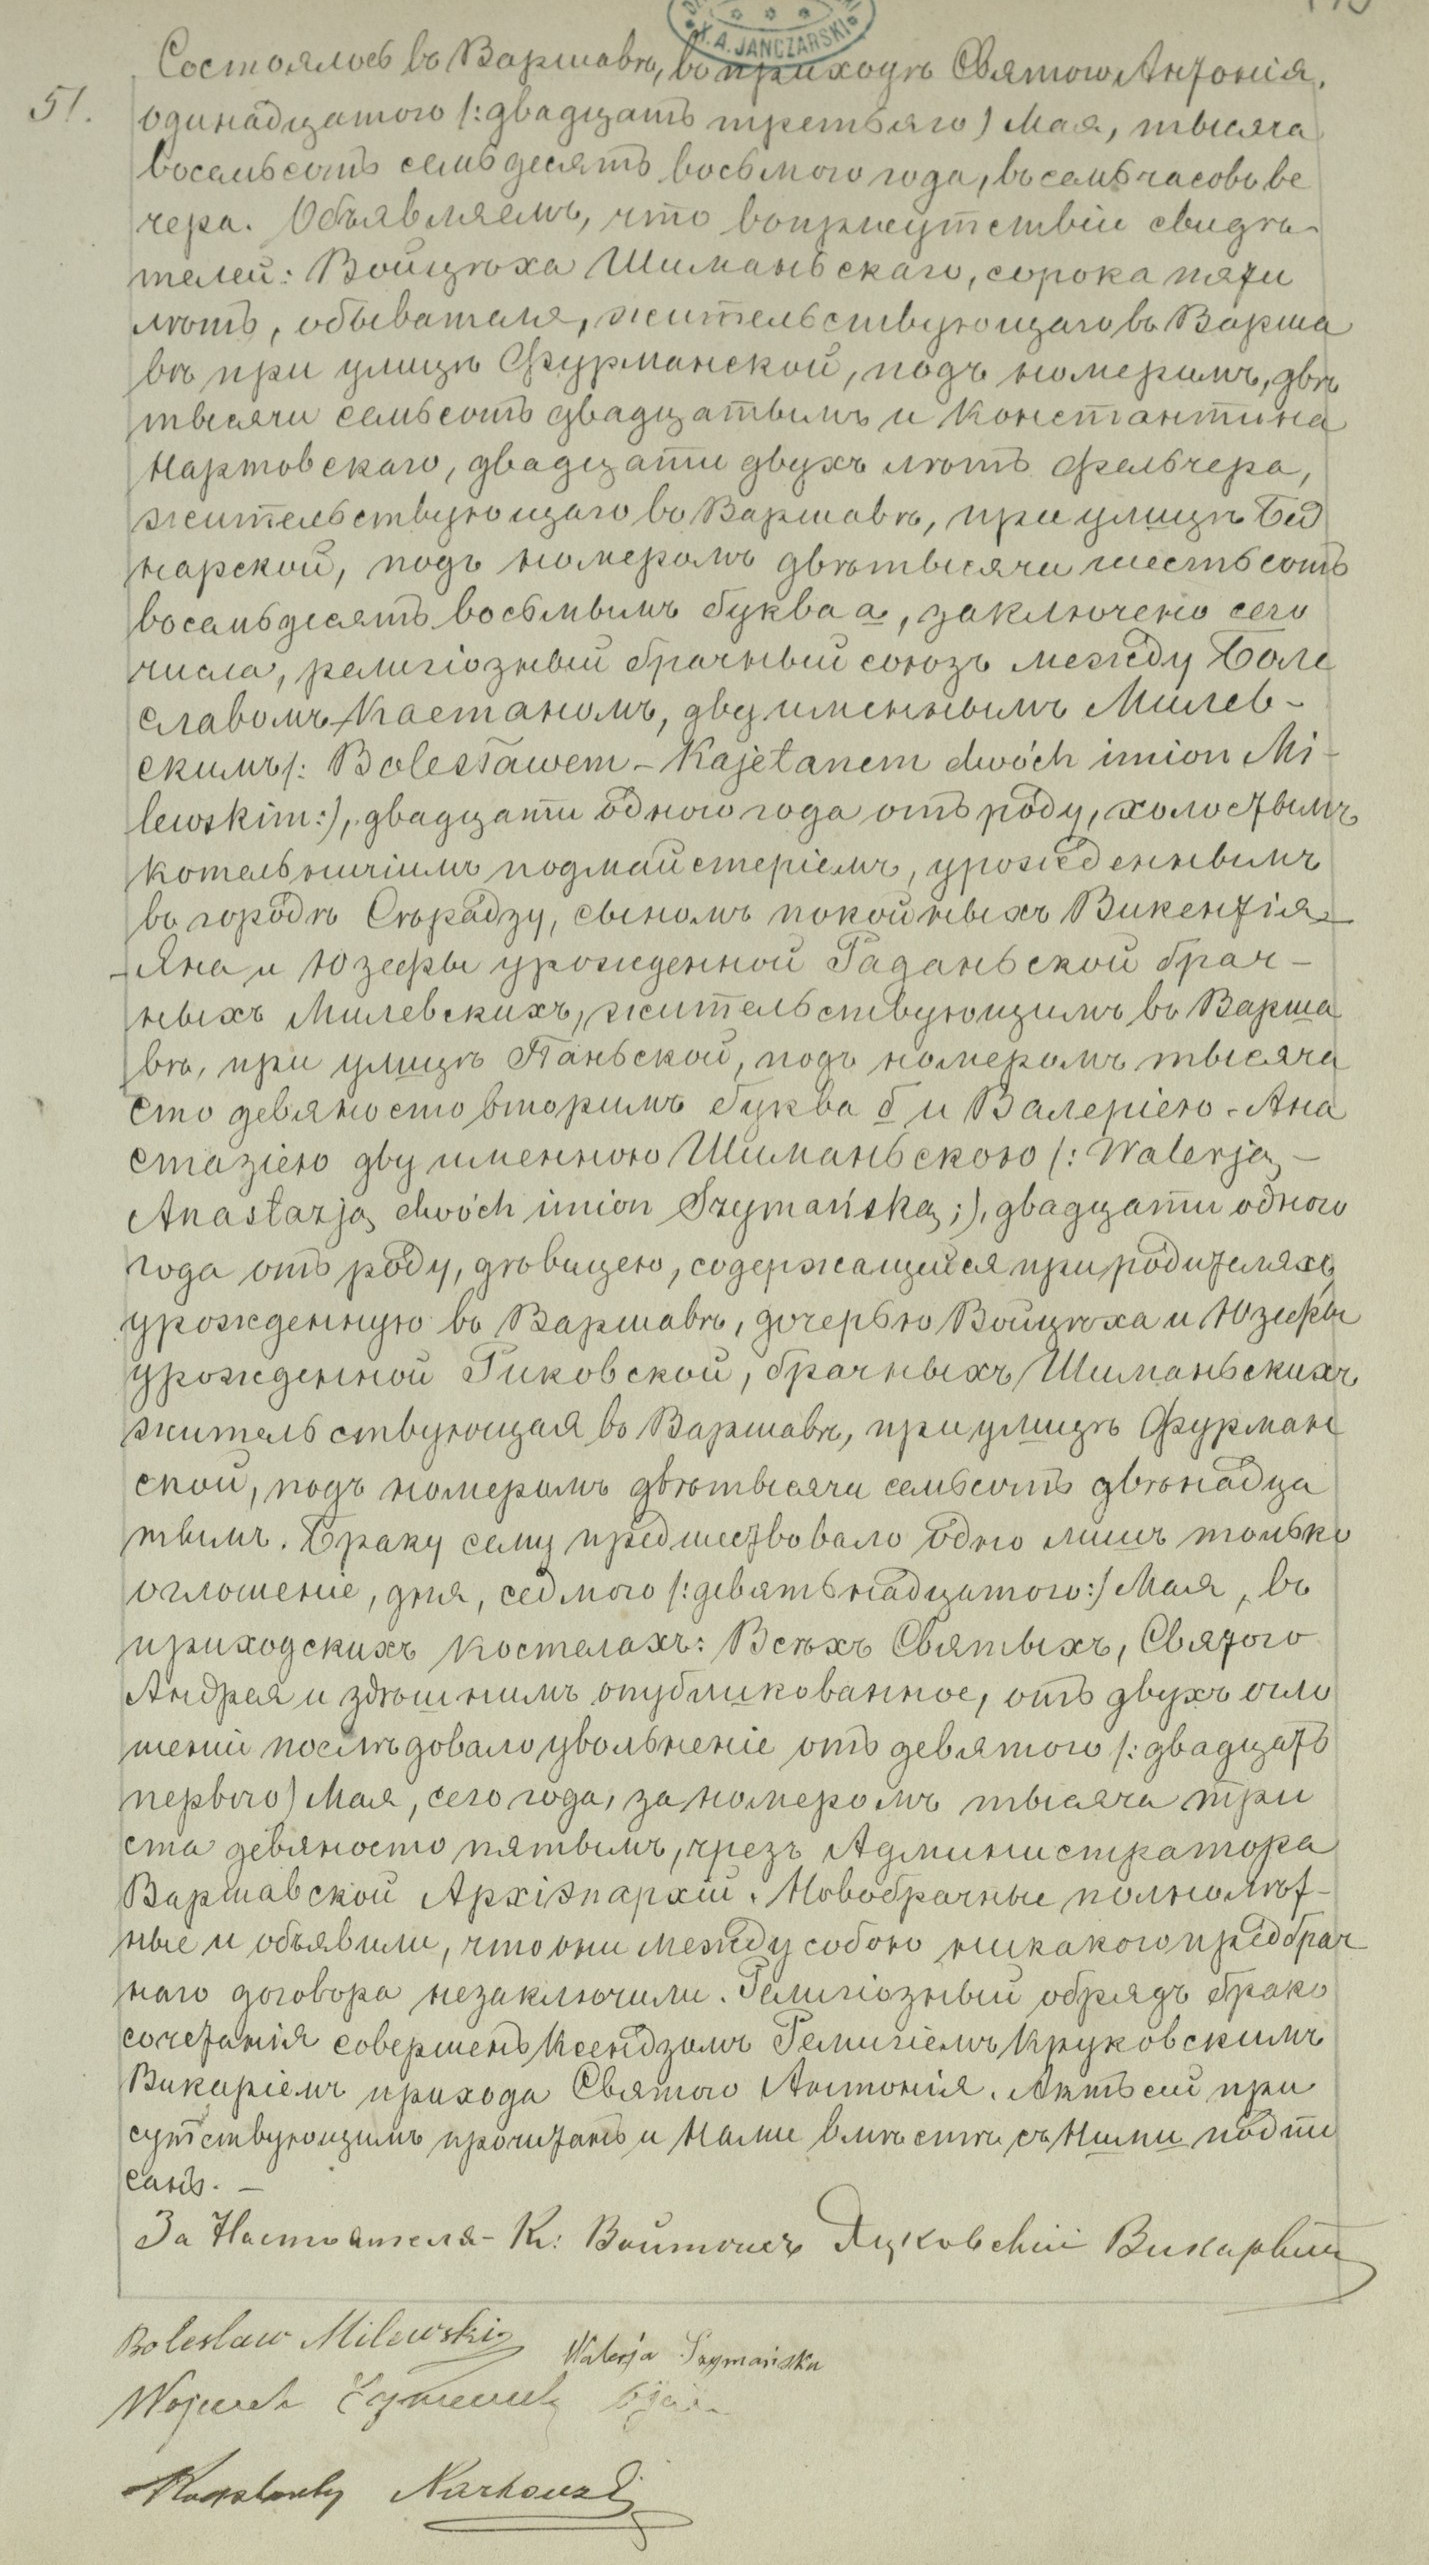 X. A. JANCZARSKI
51.
Состоялось въ Варшавѣ, въ приходѣ Святого Антонія,
одинадцатого /: двадцать третьяго) Мая, тысяча
восемьсотъ семьдесятъ восьмого года, въ семь часовъ ве
чера. Объявляемъ, что въ присутствіи свидѣ-
телей: Войцѣха Шиманьскаго, сорока пяти
лѣтъ, обывателя, жительствующаго въ Варша
вѣ при улицѣ Фурманской, подъ номеромъ, двѣ
тысячи семьсотъ двадцатымъ и Константина
Нартовскаго, двадцати двухъ лѣтъ фельчера,
жительствующаго въ Варшавѣ, при улицѣ Бед
нарской, подъ номеромъ двѣ тысячи шестьсотъ
восемьдесятъ восьмымъ буква а, заключено сего
числа, религіозный брачный союзъ между Боле
славомъ-Каетаномъ, двуименнымъ Милев-
скимъ /: Bolesławem-Kajetanem dwóch imion Mi-
lewskim:), двадцати одного года отъ роду, холостымъ
котельничіимъ подмайстеріемъ, урожденнымъ
въ городѣ Сѣрадзу, сыномъ покойныхъ Викентія-
-Яна и Юзефы урожденной Гадањской брач-
ныхъ Милевскихъ, жительствующимъ въ Варша
вѣ, при улицѣ Паньской, подъ номеромъ тысяча
сто девяносто вторимъ буква б и Валеріею-Ана
стазіею двуименною Шиманьскою /: Walerją-
Anastazją dwóch imion Szymańską;), двадцати одного
года отъ роду, дѣвицею, содержащейся при родителяхъ,
урожденную въ Варшавѣ, дочерью Войцѣха и Юзефы
урожденной Гиковской, брачныхъ Шиманьскихъ
жительствующая въ Варшавѣ, при улицѣ Фурман
ской, подъ номеромъ двѣ тысячи семьсотъ двѣнадца
тымъ. Браку сему предшествовало одно лишъ только
оглошеніе, дня, седмого /: девятьнадцатого:/ Мая, въ
приходскихъ костелахъ: Всѣхъ Святыхъ, Святого
Андрея и здѣшнимъ опубликованное, отъ двухъ огло
шеній послѣдовало увольненіе отъ девятого /: двадцать
первого) Мая, сего года, за номеромъ тысяча три
ста девяносто пятымъ, чрезъ Администратора
Варшавской Архіэпархіи. Новобрачные полнолѣт-
ные и объявили, что они между собою никакого предбрач
наго договора незаключили. Религіозный обрядъ брако
сочетанія совершенъ Ксендзомъ Ремигіемъ Круковскимъ
Викаріемъ прихода Святого Антонія. Актъ сей при
сутствующимъ прочитанъ и Нами вмѣстѣ съ Ними подпи
санъ. -
За Настоятеля - Кс: Яцковскій Викарный
Bolesław Milewski Walerja Szymańska
Wojciech
Konstanty Nartowski